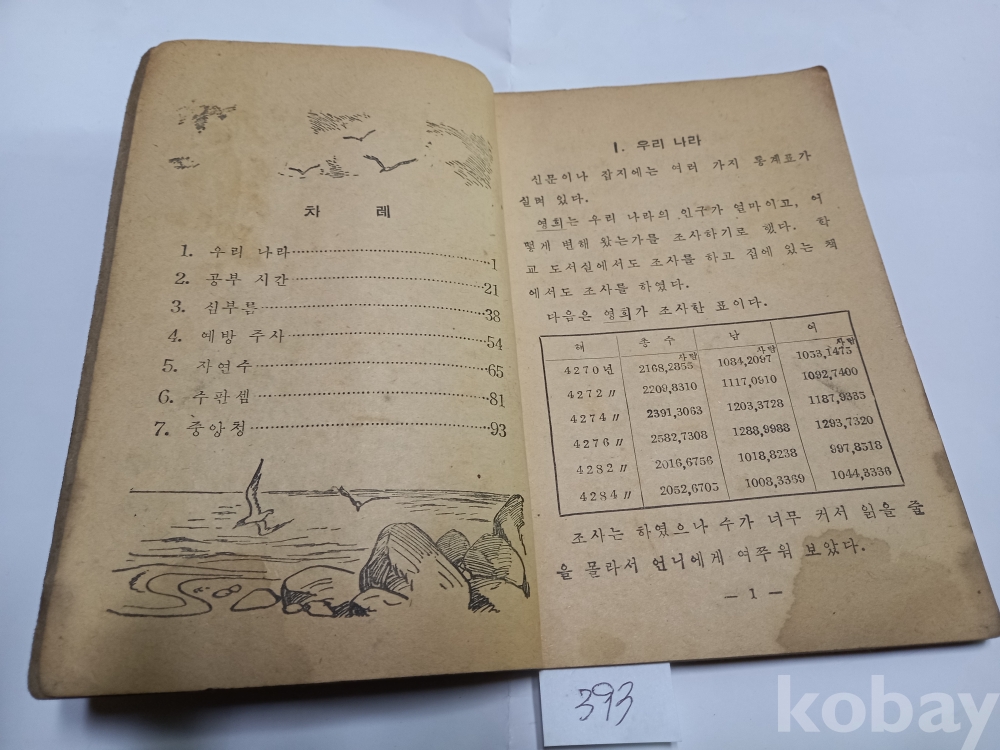 차 례
1. 우리 나라 1
2. 공부 시간 21
3. 심부름 38
4. 예방 주사 54
5. 자연수 65
6. 주판셈 81
7. 중앙청 93
1. 우리 나라
신문이나 잡지에는 여러 가지 통계표가
실려 있다.
영희는 우리 나라의 인구가 얼마이고, 어
떻게 변해 왔는가를 조사하기로 했다. 학
교 도서실에서도 조사를 하고 집에 있는 책
에서도 조사를 하였다.
다음은 영희가 조사한 표이다.
해 총 수 남 여
4270년 2168,2855사람 1084,2097사람 1053,1475사람
4272〃 2209,8310 1117,0910 1092,7400
4274〃 2391,3063 1203,3728 1187,9335
4276〃 2582,7308 1288,9988 1293,7320
4282〃 2016,6756 1018,8238 997,8518
4284〃 2052,6705 1008,3369 1044,3336
조사는 하였으나 수가 너무 커서 읽을 줄
을 몰라서 언니에게 여쭈워 보았다.
— 1 —
393
kobay